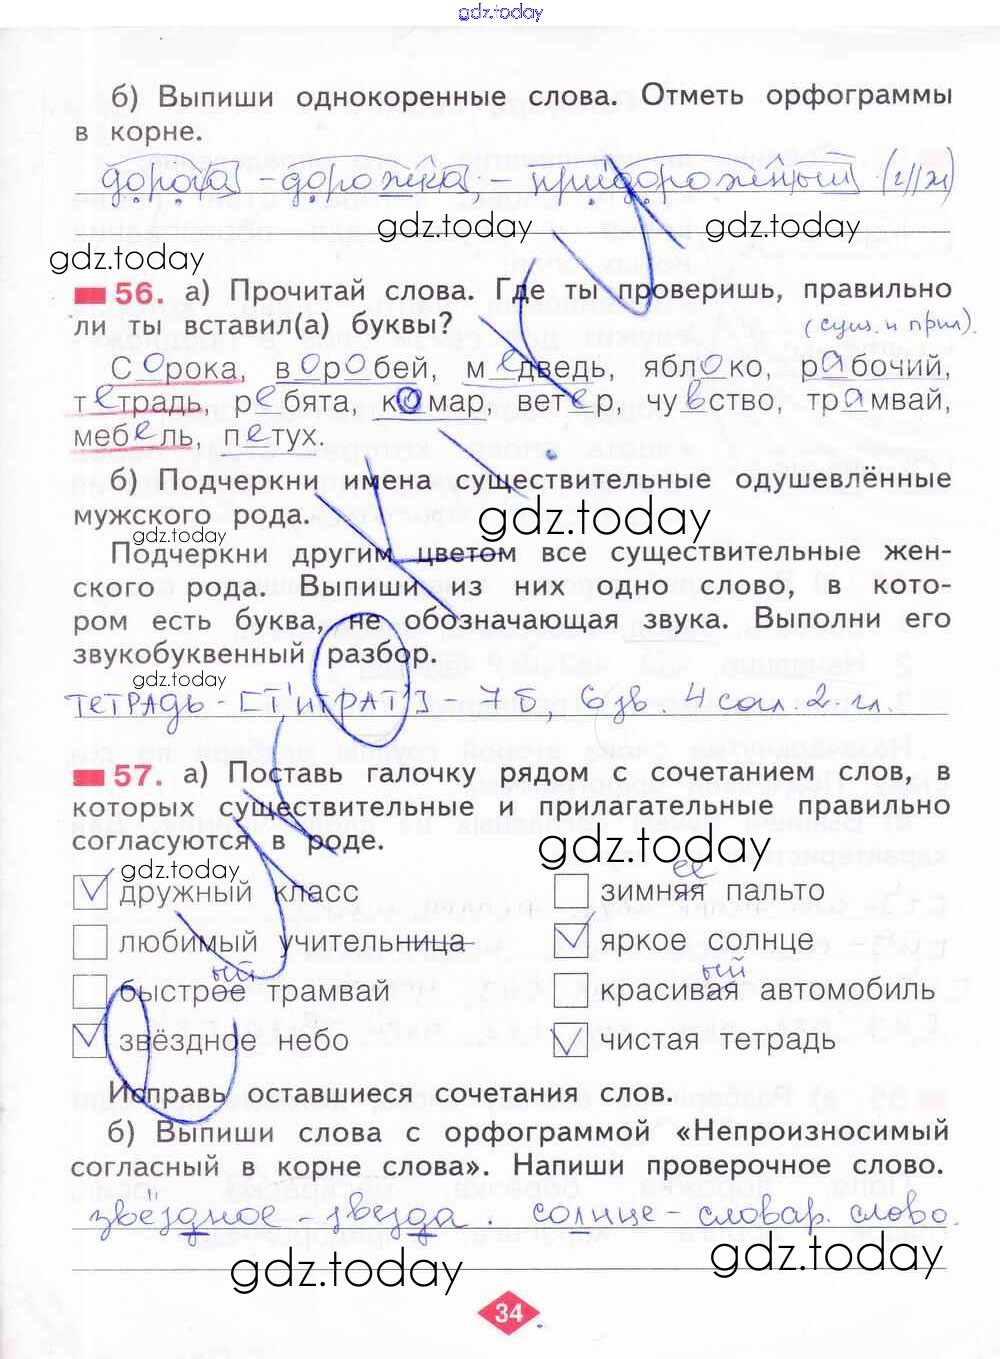 gdz.today
б) Выпиши однокоренные слова. Отметь орфограммы
в корне.
дорога - дорожка - придорожный (г//ж)
gdz.today gdz.today
gdz.today
56. а) Прочитай слова. Где ты проверишь, правильно
ли ты вставил(а) буквы?
(сущ. и прил).
Сорока, воробей, медведь, яблоко, рабочий,
тетрадь, ребята, комар, ветер, чувство, трамвай,
мебель, петух.
б) Подчеркни имена существительные одушевлённые
мужского рода.
gdz.today gdz.today
Подчеркни другим цветом все существительные жен-
ского рода. Выпиши из них одно слово, в кото-
ром есть буква, не обозначающая звука. Выполни его
звукобуквенный разбор.
gdz.today
тетрадь - [т'итрат'] - 7 б, 6 зв. 4 согл. 2 гл.
57. а) Поставь галочку рядом с сочетанием слов, в
которых существительные и прилагательные правильно
согласуются в роде.
gdz.today
gdz.today
ее
дружный класс зимняя пальто
любимый учительница яркое солнце
ый ый
быстрое трамвай красивая автомобиль
звёздное небо чистая тетрадь
Исправь оставшиеся сочетания слов.
б) Выпиши слова с орфограммой «Непроизносимый
согласный в корне слова». Напиши проверочное слово.
звёздное - звезда. солнце - словар. слово.
gdz.today gdz.today
34